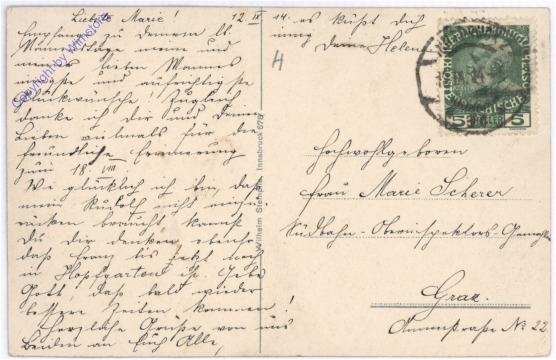 Liebe Marie! 12. IX. 14.
Empfang zu Deinem ll.
Namenstage meine und
meines lieben Mannes
innigste und aufrichtigste
Glückwünsche! Zugleich
danke ich dir und Deinen
Lieben vielmals für die
freundliche Erinnerung
zum 18. VIII.
Wie glücklich ich bin, daß
mein Rudolf nicht einrücken
braucht kannst
Du dir denken, ebenso
daß Franz bis jetzt noch
in Hopfgarten ist. Gebe
Gott, daß bald wieder
bessere Zeiten kommen!
Herzliche Grüße von uns
Beiden an Euch Alle,
es küßt dich
Helene
H
Copyright by Wimstore
Wilhelm Stempfle, Innsbruck 678
5 HELLER 5
Hochwohlgeboren
Frau Marie Scherer
Südbahn-Oberinspektors-Gemahlin
Graz.
Annenstraße No 22